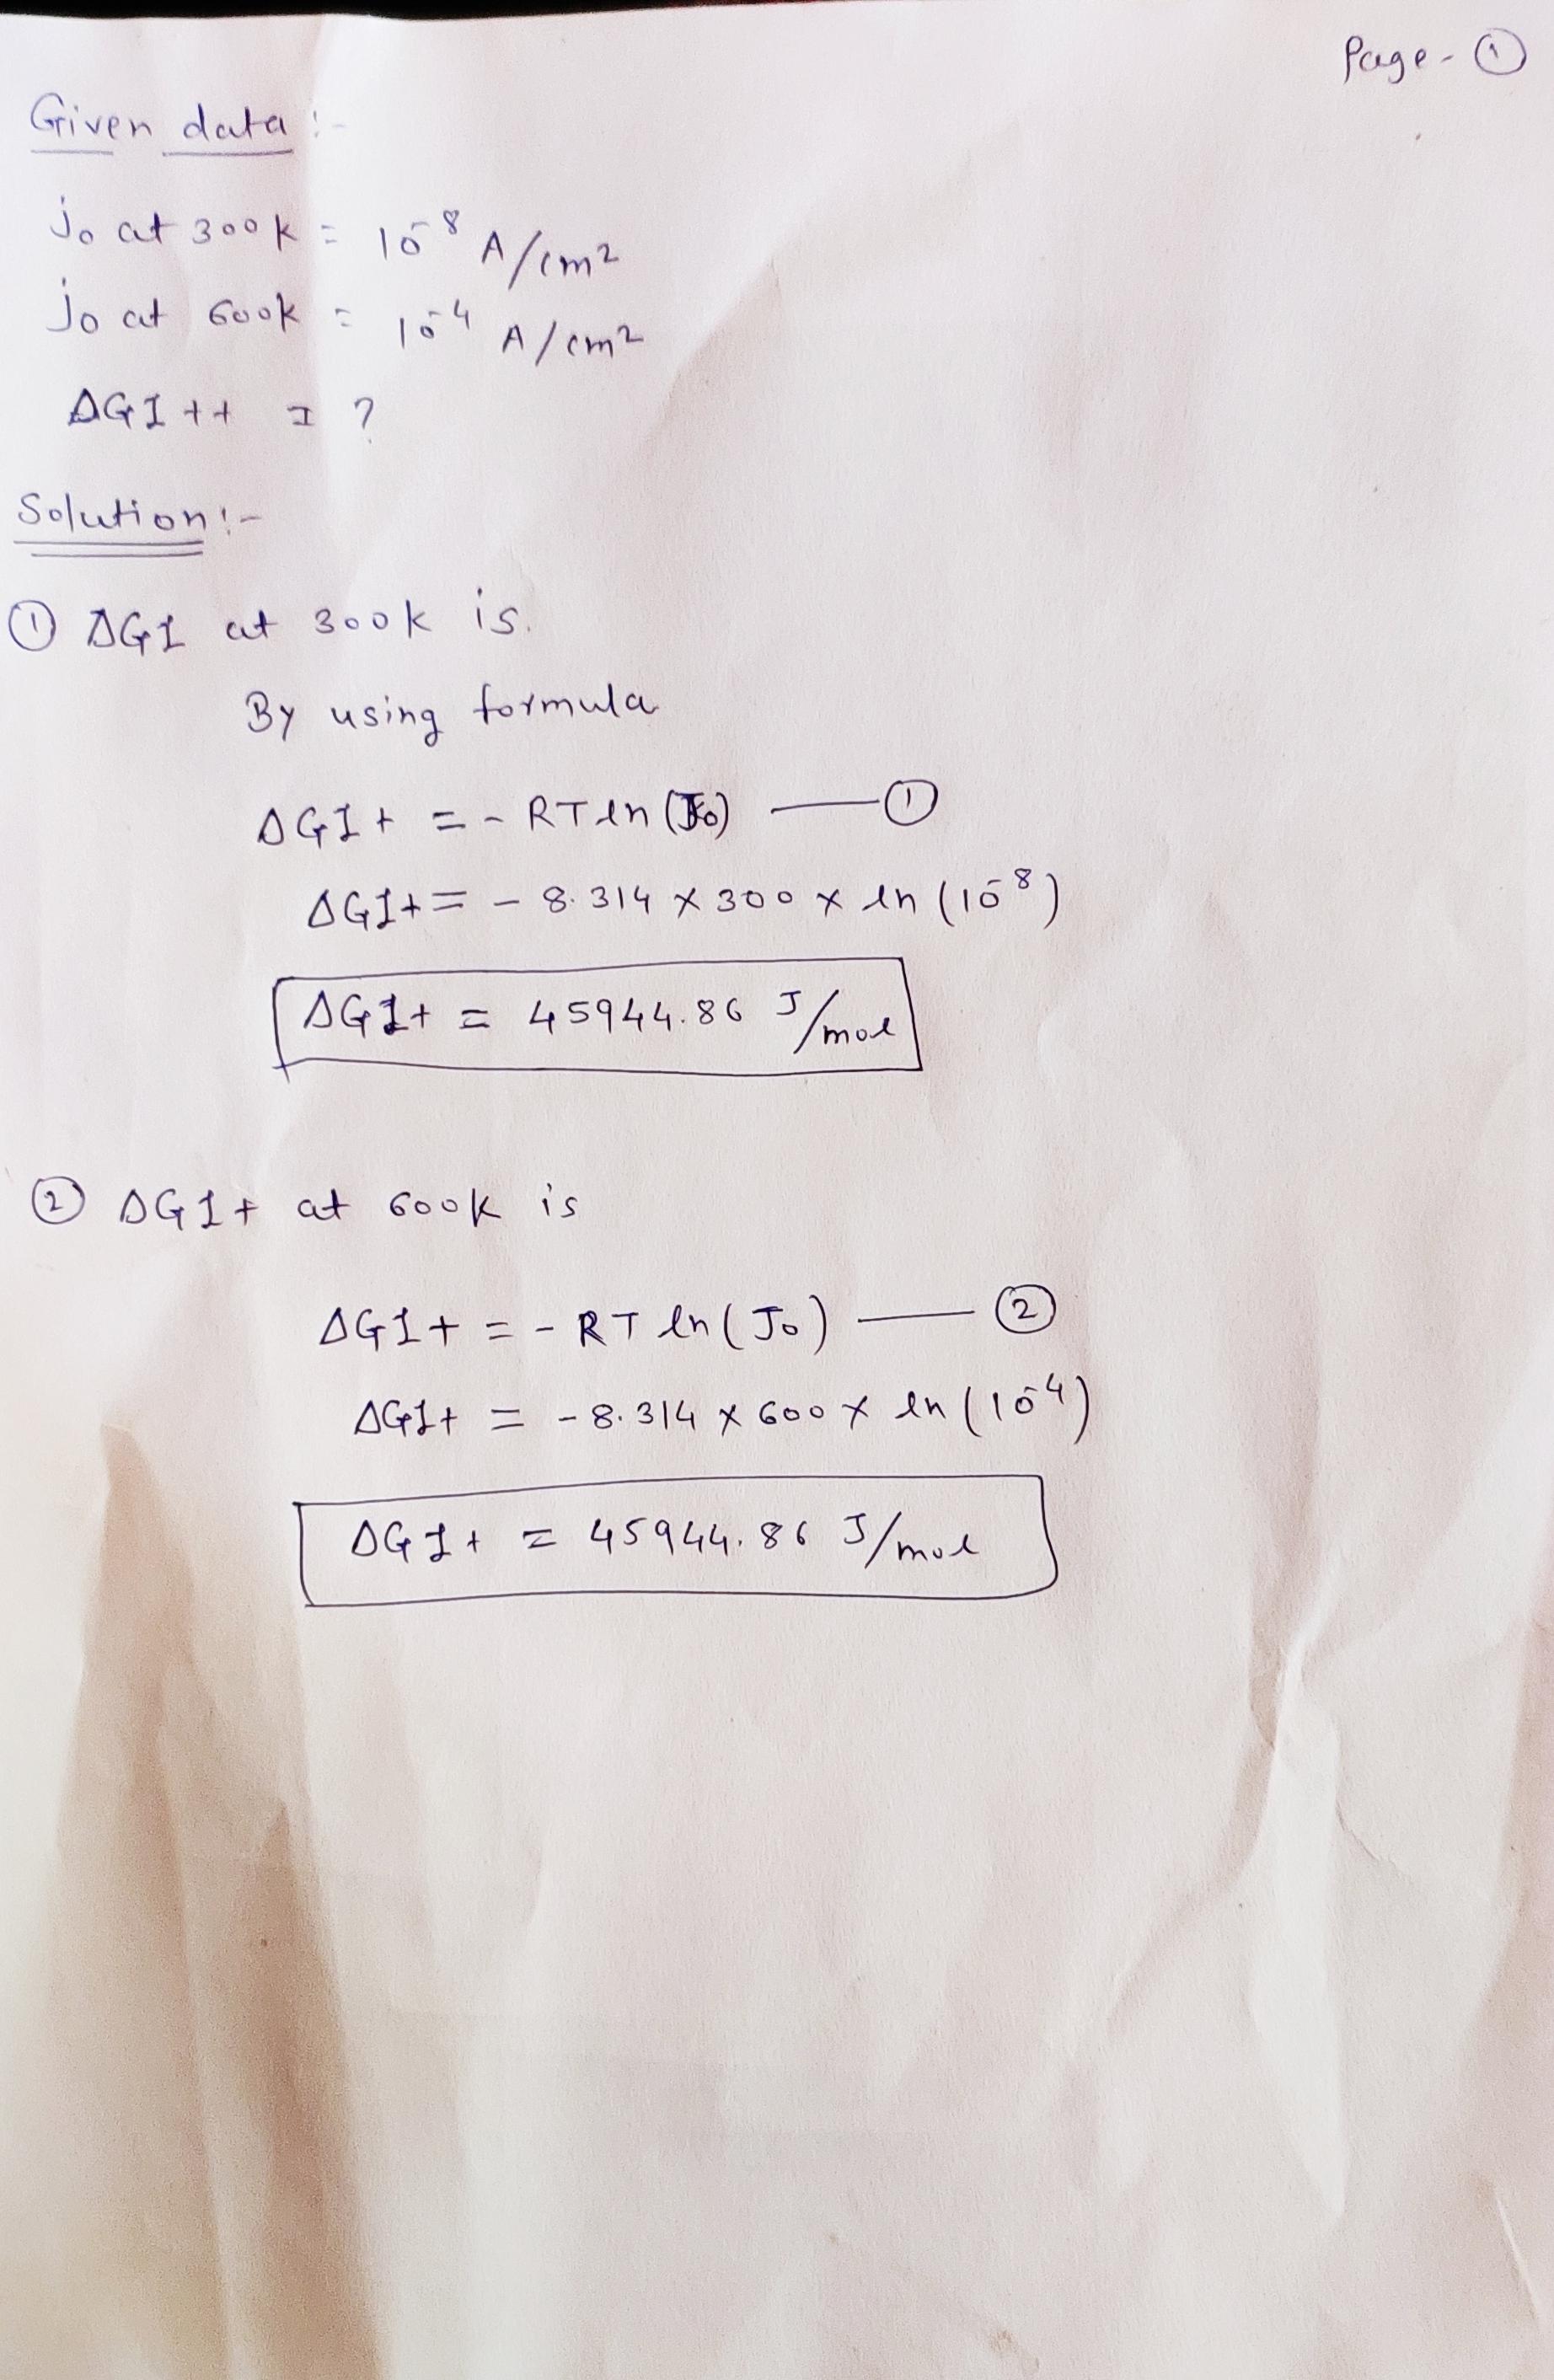 Page - ①
Given data :-
jo at 300k = 10⁻⁸ A/cm²
jo at 600k = 10⁻⁴ A/cm²
ΔGI ++ = ?
Solution :-
① ΔGI at 300k is.
By using formula
ΔGI+ = - RT ln (Jo) — ①
ΔGI+ = - 8.314 × 300 × ln (10⁻⁸)
ΔGI+ = 45944.86 J/mol
② ΔGI+ at 600k is
ΔGI+ = - RT ln (Jo) — ②
ΔGI+ = - 8.314 × 600 × ln (10⁻⁴)
ΔGI+ = 45944.86 J/mol